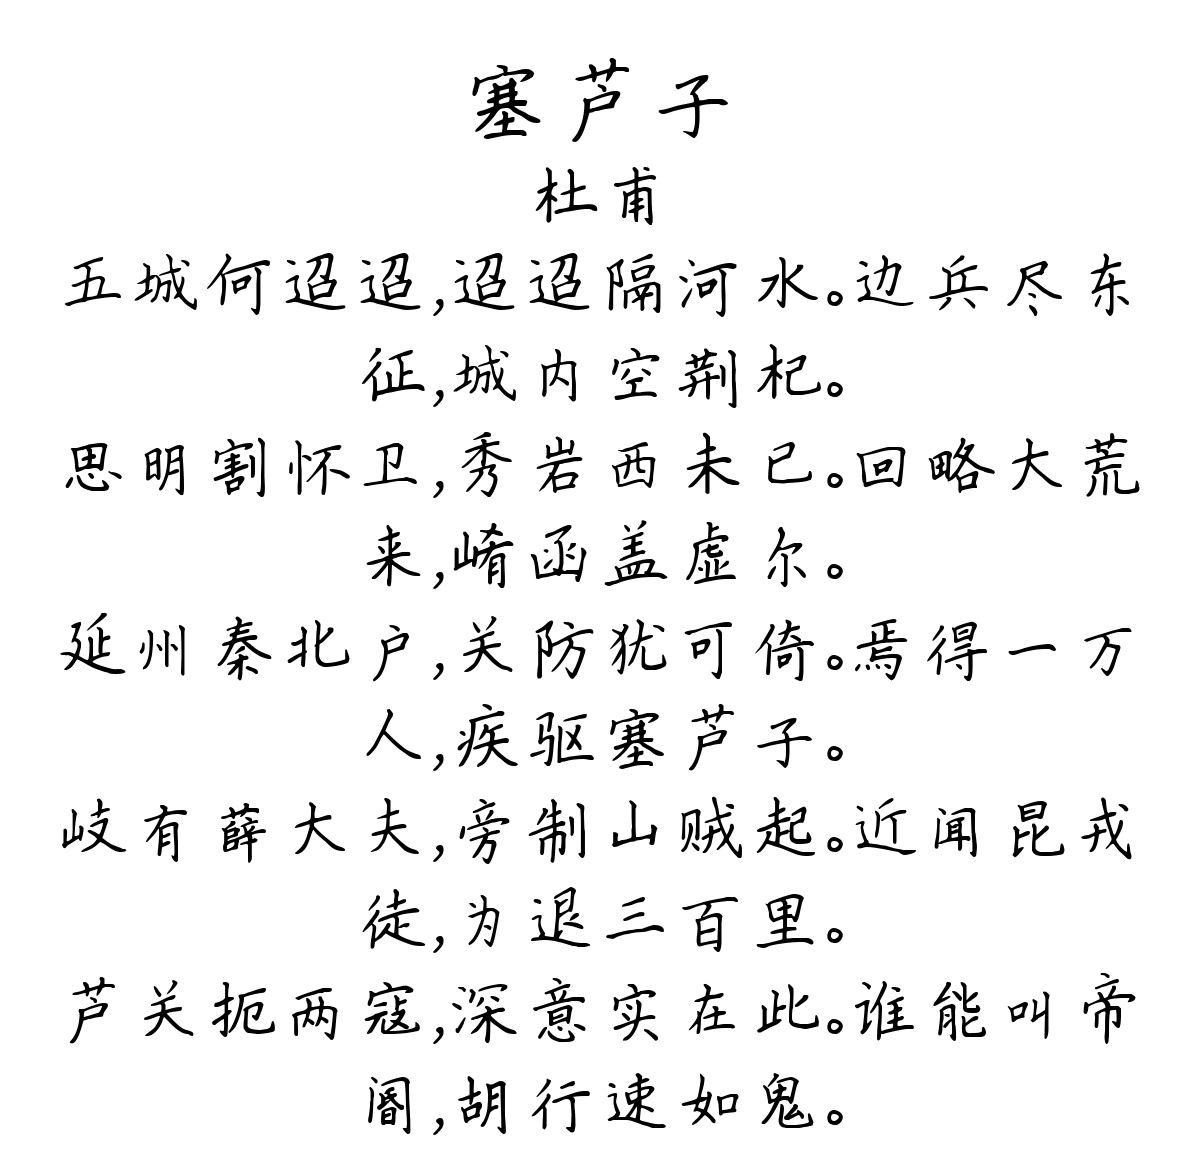 塞芦子
杜甫
五城何迢迢,迢迢隔河水。边兵尽东
征,城内空荆杞。
思明割怀卫,秀岩西未已。回略大荒
来,崤函盖虚尔。
延州秦北户,关防犹可倚。焉得一万
人,疾驱塞芦子。
岐有薛大夫,旁制山贼起。近闻昆戎
徒,为退三百里。
芦关扼两寇,深意实在此。谁能叫帝
阍,胡行速如鬼。